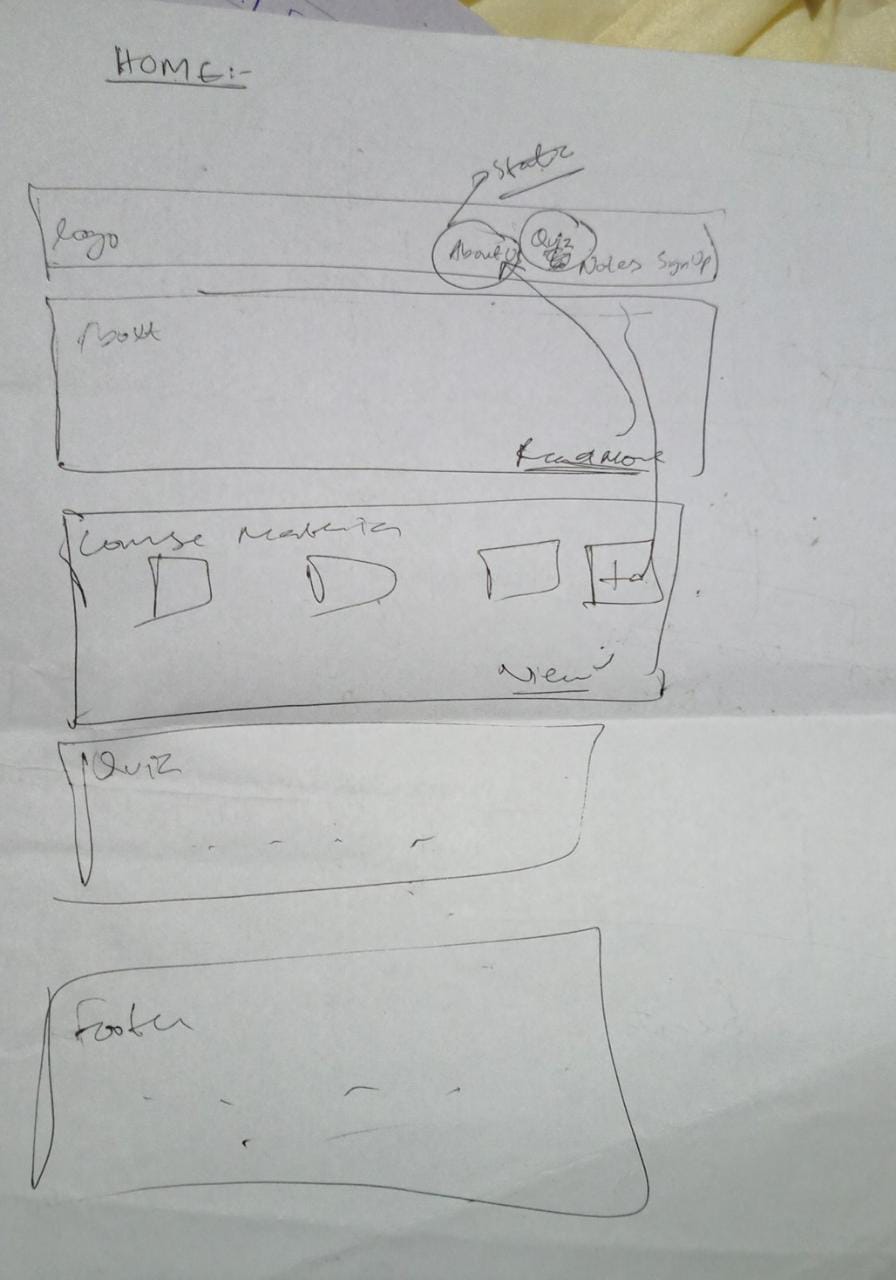 HOME:-
Static
Logo
About Us
Quiz
Notes SignUp
About
Read More
Course Material
View
Quiz
Footer